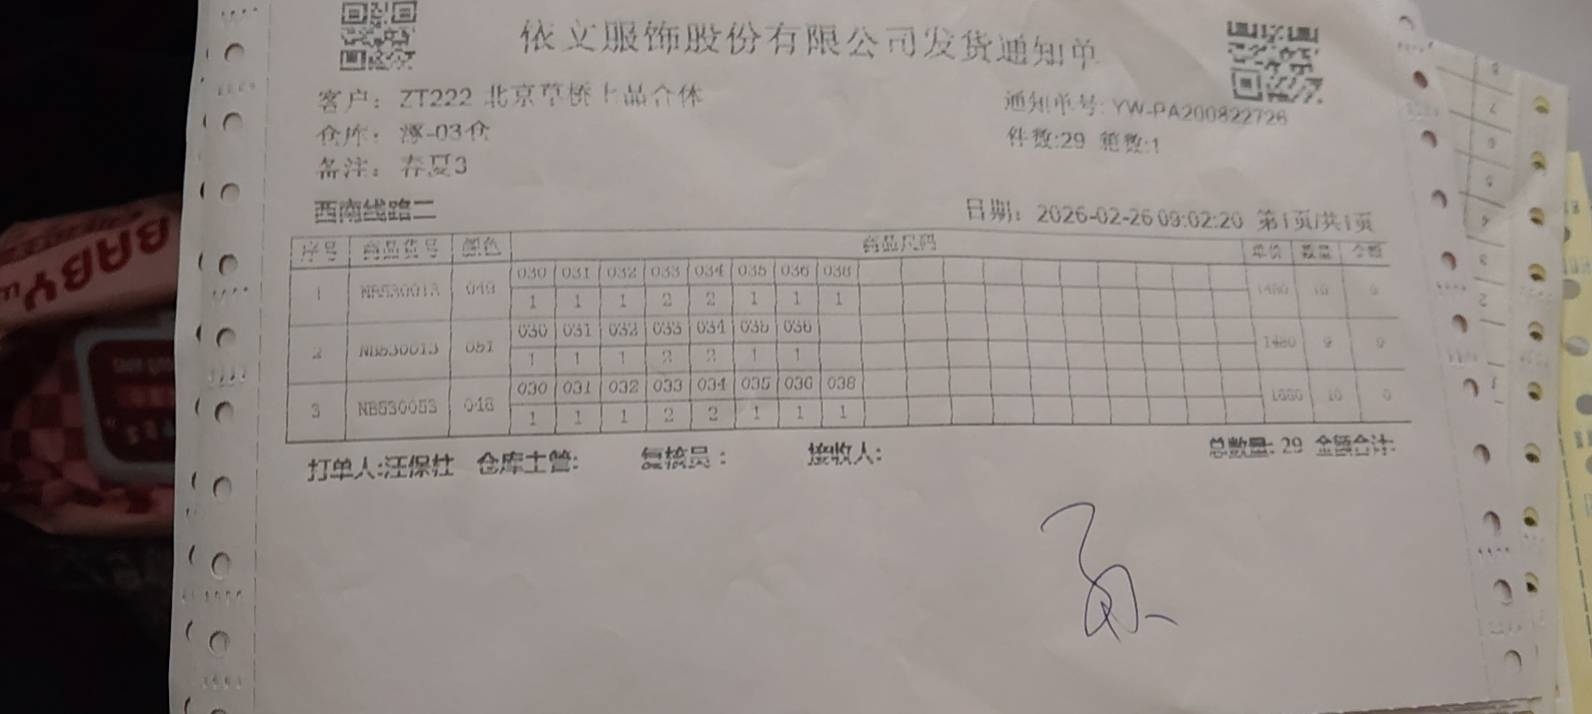 依文服饰股份有限公司发货通知单
客户: ZT222 北京草桥上品合体
通知单号: YW-PA200822726
仓库: 涿-03仓
件数:29 箱数:1
备注: 春夏3
西南线路二
日期: 2026-02-26 09:02:20 第1页/共1页
序号 商品货号 颜色 商品尺码 单价 数量 金额
030 031 032 033 034 035 036 038
1 NB530013 049 1480 10 0
1 1 1 2 2 1 1 1
030 031 032 033 034 035 036
2 NB530013 051 1480 9 0
1 1 1 2 2 1 1
030 031 032 033 034 035 036 038
3 NB530053 048 10 0
1 1 1 2 2 1 1 1
打单人:汪保柱 仓库主管: 复核员: 接收人: 总数量: 29 金额合计:
BABY